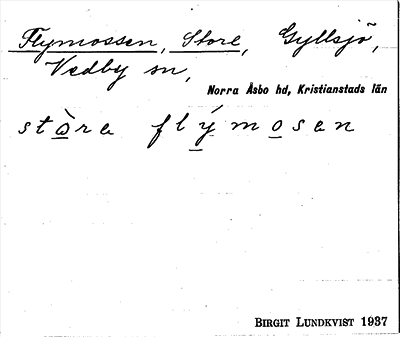 Flymossen, Store, Gyllsjö,
Vedby sn,
Norra Åsbo hd, Kristianstads län
stò̲ra flý̲mo̲san
BIRGIT LUNDKVIST 1937